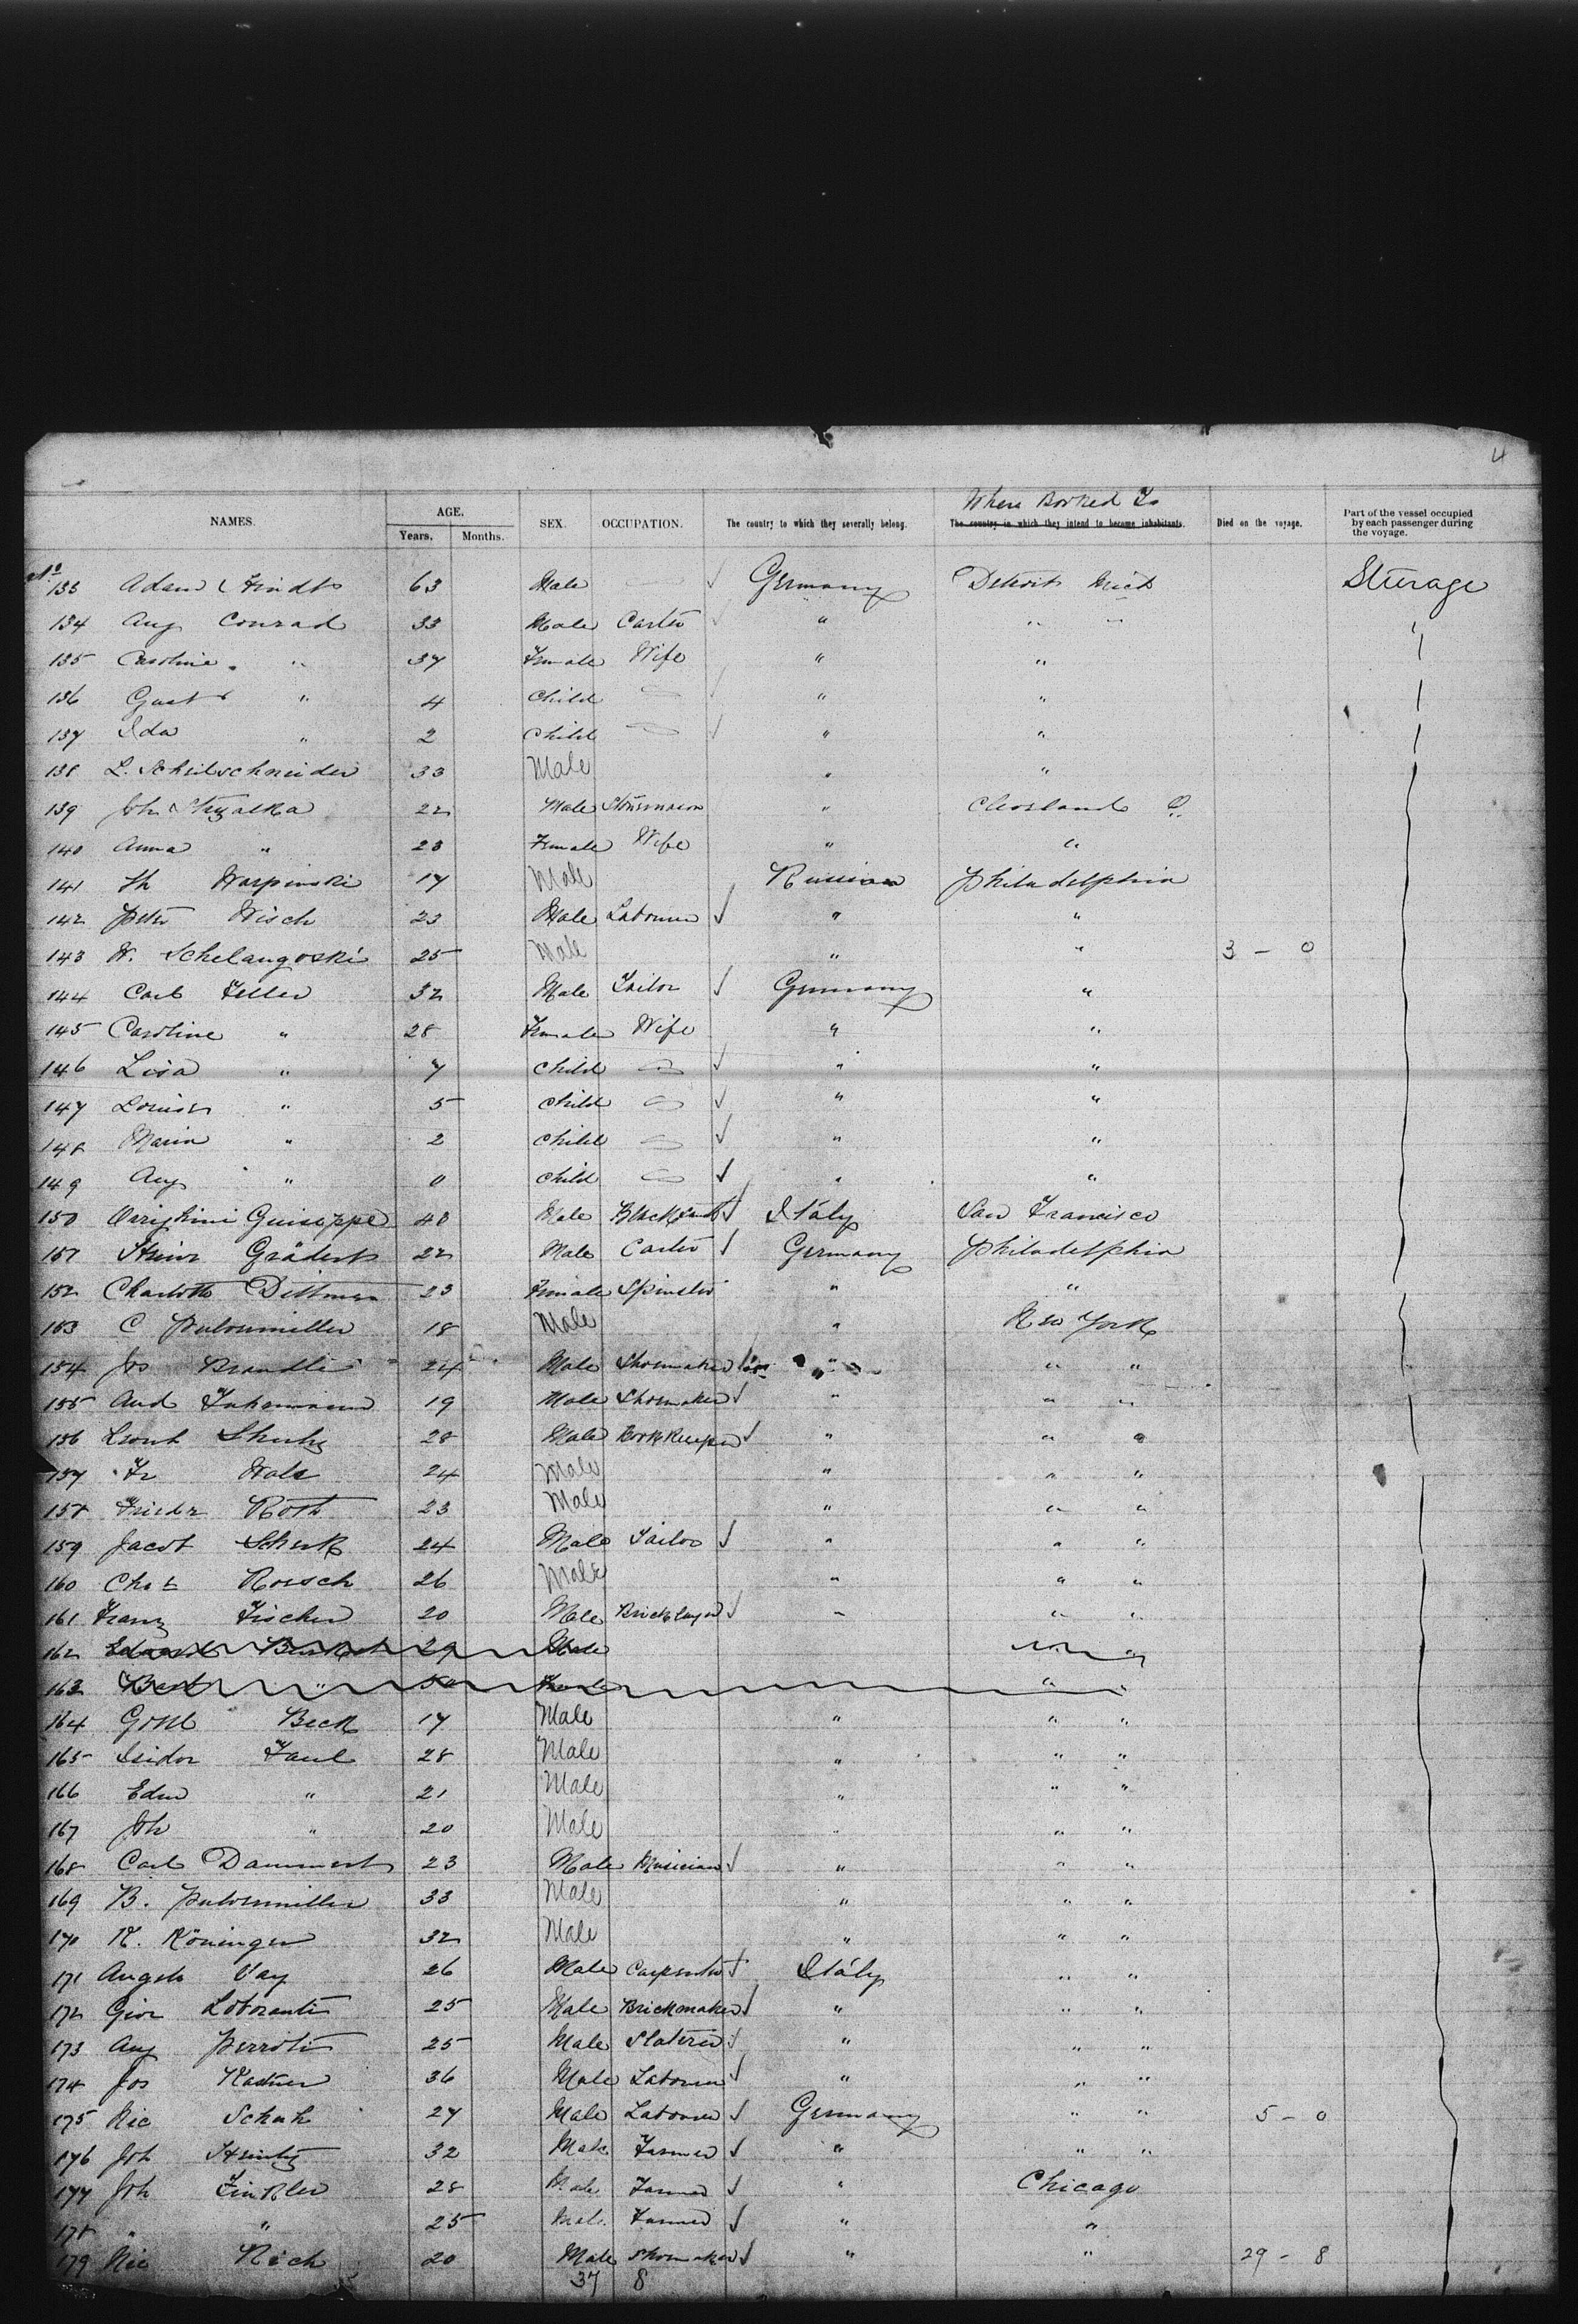 4
Where Booked To
NAMES. AGE. SEX. OCCUPATION. The country to which they severally belong. The country in which they intend to become inhabitants. Died on the voyage. Part of the vessel occupied by each passenger during the voyage.
Years. Months.
No
133 Adam 63 Male — ✓ Germany Detroit Mich Steerage
134 Aug Conrad 33 Male Carter ✓ " " " "
135 Caroline " 37 Female Wife " "
136 Gust " 4 Child — ✓ " "
137 Ida " 2 Child — ✓ " "
138 L. 33 Male " "
139 Joh 22 Male Stonemason " Cleveland O.
140 Anna " 23 Female Wife " "
141 Th Warpinski 17 Male Russian Philadelphia
142 Peter Wisch 23 Male Labourer ✓ " "
143 W. Schelangoski 25 Male " " 3 - 0
144 Carl Feller 32 Male Tailor ✓ Germany "
145 Caroline " 28 Female Wife " "
146 Lisa " 7 Child — ✓ " "
147 Louise " 5 Child — ✓ " "
148 Maria " 2 Child — ✓ " "
149 Aug " 0 Child — ✓ " "
150 Guiseppe 40 Male Blacksmith ✓ Italy San Francisco
151 Heinr Gradert 22 Male Carter ✓ Germany Philadelphia
152 Charlotte Dittmer 23 Female Spinster " "
153 C 18 Male " New York
154 Jos Brandli 24 Male Shoemaker ✓ " " "
155 And 19 Male Shoemaker ✓ " " "
156 Leonh 28 Male Bookkeeper ✓ " " "
157 Fr Walz 24 Male " " "
158 Friedr Roth 23 Male " " "
159 Jacob Schenk 24 Male Tailor ✓ " " "
160 Roesch 26 Male " " "
161 Franz Fischer 20 Male Bricklayer ✓ " " "
162 29 Male " "
163 " " "
164 Gottl Beck 17 Male " " "
165 Isidor Faul 28 Male " " "
166 Edw " 21 Male " " "
167 Joh " 20 Male " " "
168 Carl Dammert 23 Male Musician ✓ " " "
169 B. 33 Male " " "
170 K. Köninger 32 Male " " "
171 Angelo Vay 26 Male Carpenter ✓ Italy " "
172 Giov 25 Male Brickmaker ✓ " " "
173 Aug Perroti 25 Male ✓ " " "
174 Jos Kastner 36 Male Labourer ✓ " " "
175 Nic Schuh 27 Male Labourer ✓ Germany " " 5 - 0
176 Joh Heintz 32 Male Farmer ✓ " " "
177 Joh Finkler 28 Male Farmer ✓ " Chicago
178 " " 25 Male Farmer ✓ " "
179 Nic Reck 20 Male Shoemaker ✓ " " 29 - 8
37 8